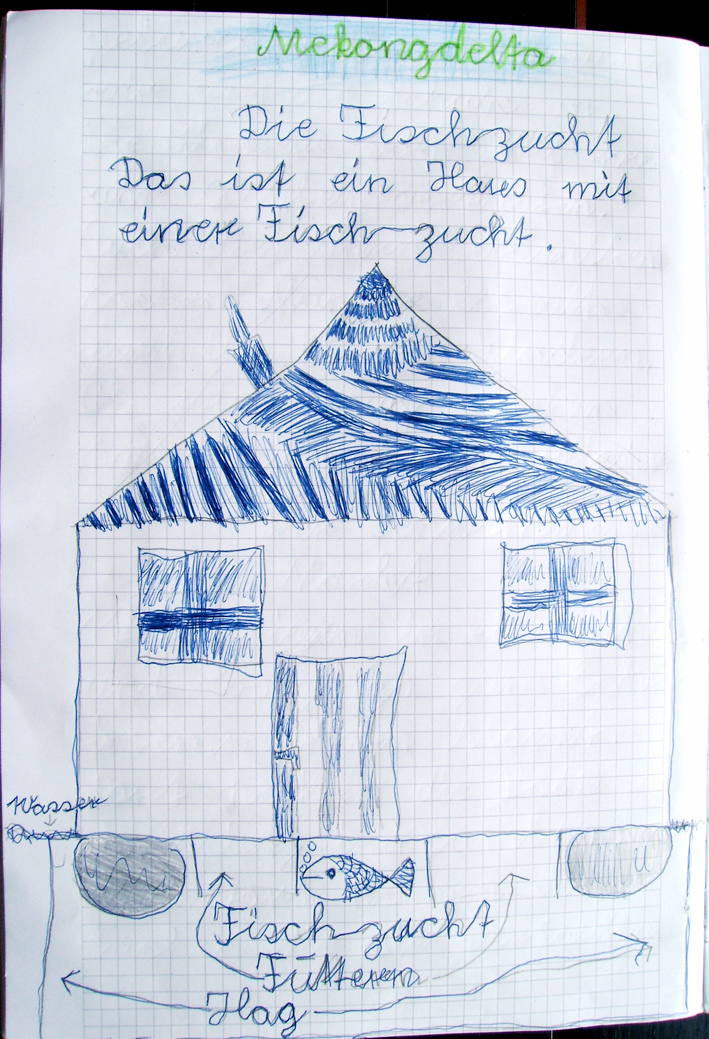 Mekongdelta
Die Fischzucht
Das ist ein Haus mit
einer Fisch-zucht.
Wasser
Fisch-zucht
Füttern
Hag